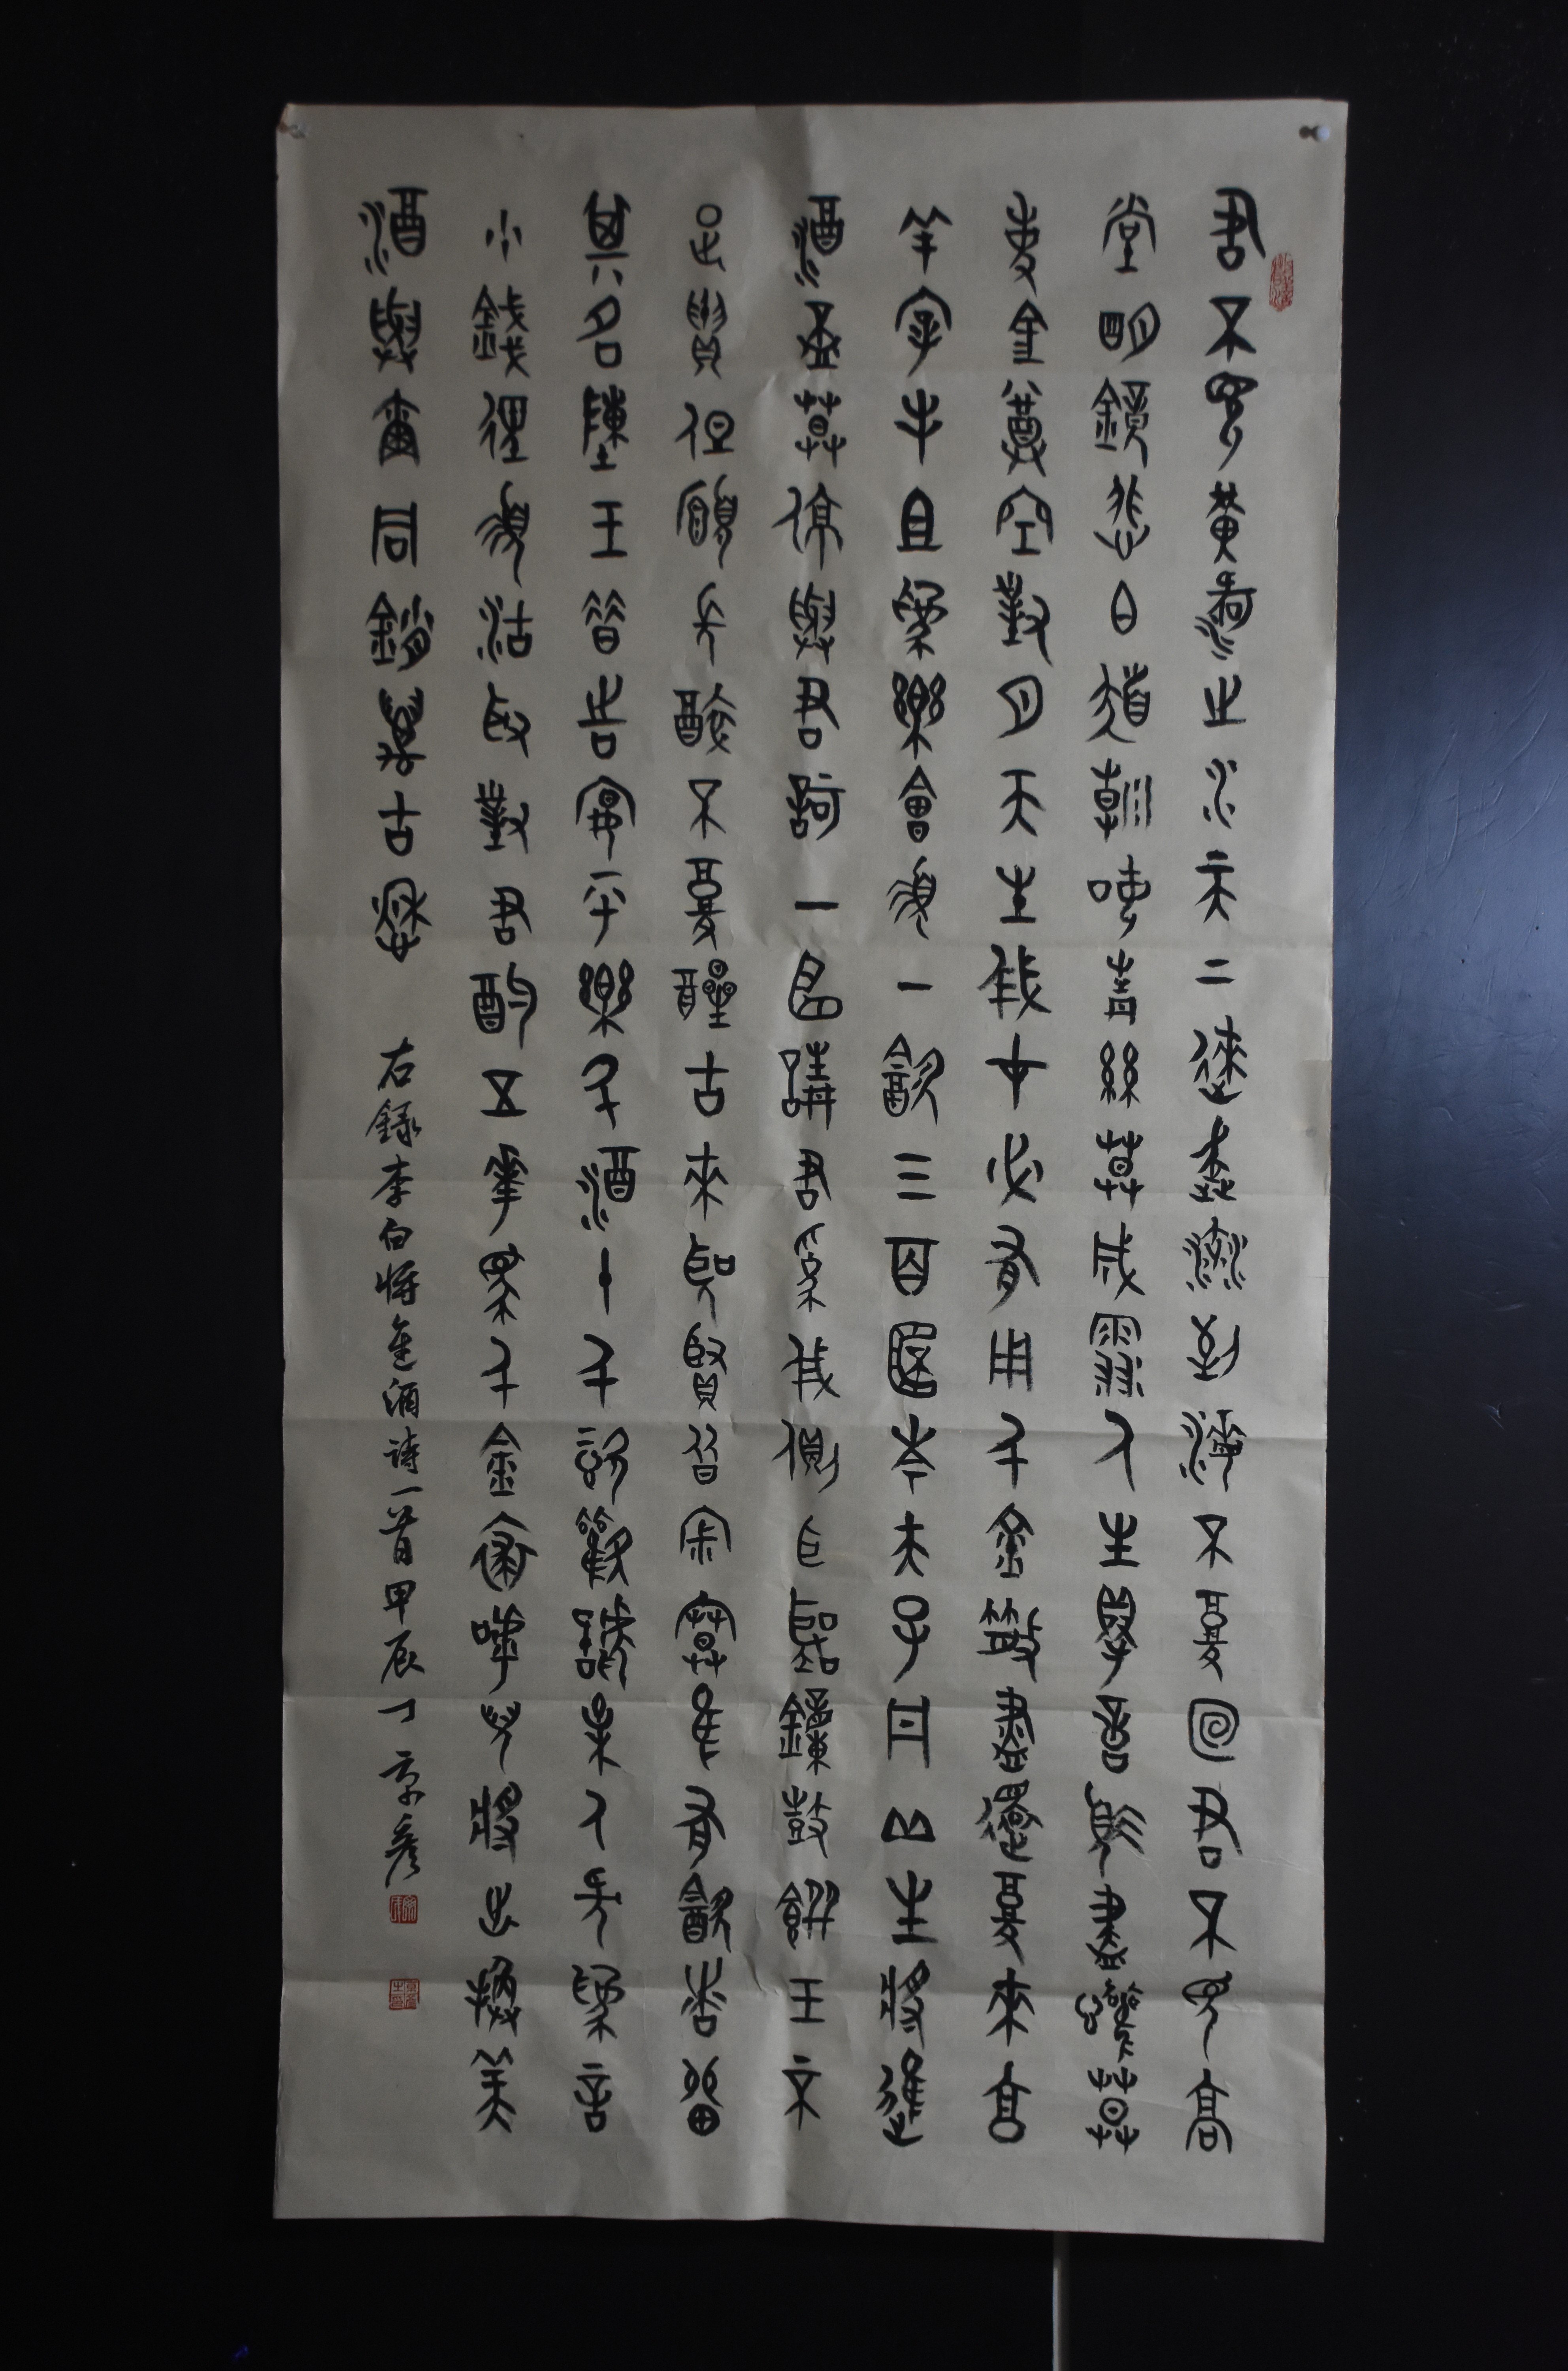 君不見黃河之水天上來奔流到海不復回君不見高
堂明鏡悲白髮朝如青絲莫成雪人生得意須盡歡莫
使金尊空對月天生我才必有用千金散盡還復來亯
羊宰牛且為樂會須一飲三百杯岑夫子丹丘生將進
酒杯莫停與君歌一曲請君為我側耳聽鐘鼓饌玉不
足貴但願長醉不復醒古來聖賢皆寂寞隹有飲者留
其名陳王昔時宴平樂斗酒十千恣歡謔主人何為言
少錢徑須沽取對君酌五花馬千金裘呼兒將出換美
酒與爾同銷萬古愁 右録李白將進酒詩一首甲辰丁京彥